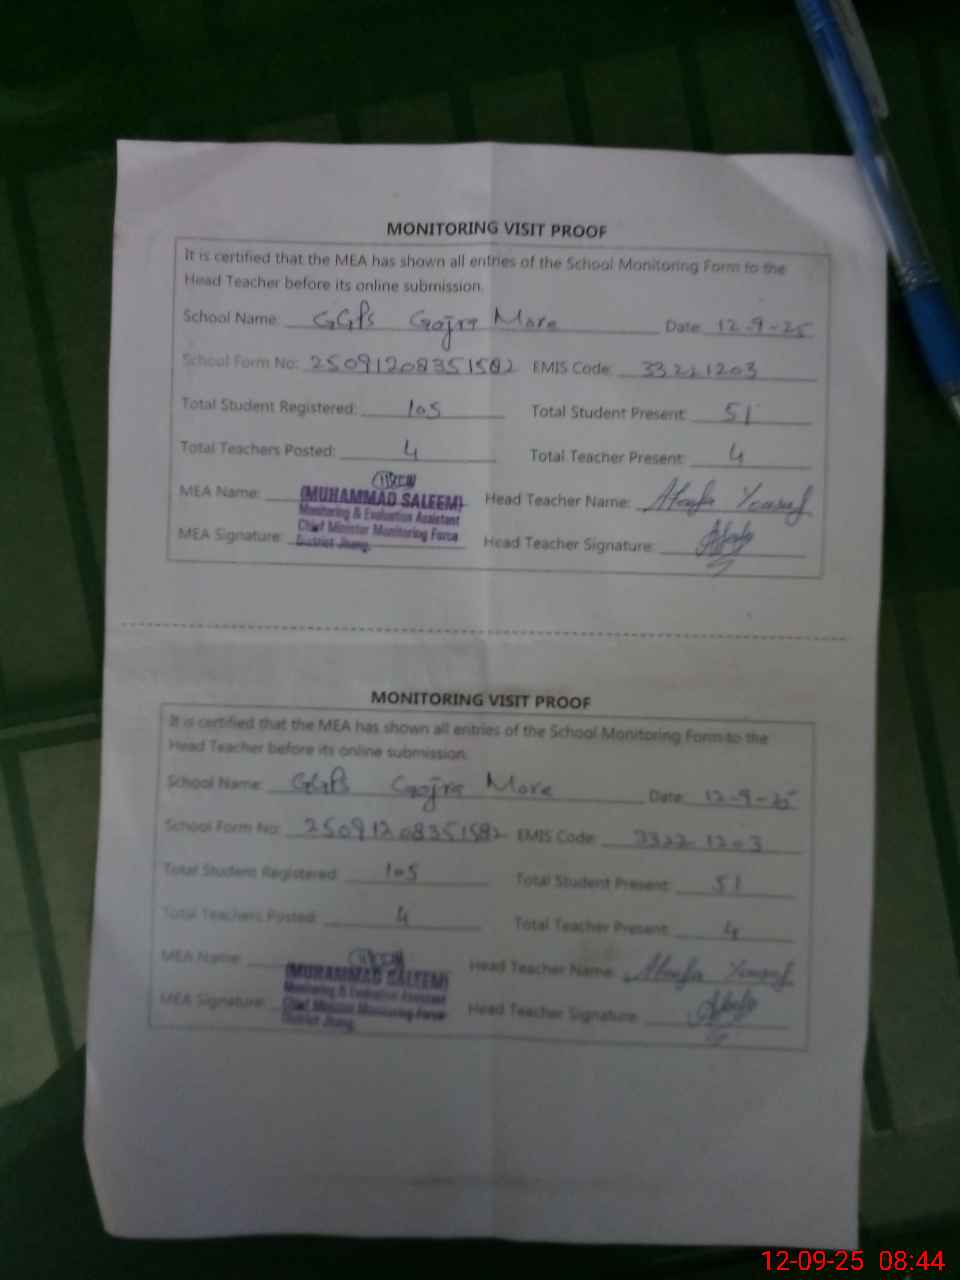 MONITORING VISIT PROOF
It is certified that the MEA has shown all entries of the School Monitoring Form to the
Head Teacher before its online submission.
School Name: GGPS Gojra More Date: 12-9-25
School Form No: 25091208351582 EMIS Code: 33221203
Total Student Registered: 105 Total Student Present: 51
Total Teachers Posted: 4 Total Teacher Present: 4
MEA Name: (MUHAMMAD SALEEM) Head Teacher Name: Yousaf
Monitoring & Evaluation Assistant
Chief Minister Monitoring Force
MEA Signature: District Jhang. Head Teacher Signature:
MONITORING VISIT PROOF
It is certified that the MEA has shown all entries of the School Monitoring Form to the
Head Teacher before its online submission.
School Name: GGPS Gojra More Date: 12-9-25
School Form No: 25091208351582 EMIS Code: 33221203
Total Student Registered: 105 Total Student Present: 51
Total Teachers Posted: 4 Total Teacher Present: 4
MEA Name: (MUHAMMAD SALEEM) Head Teacher Name: Yousaf
Monitoring & Evaluation Assistant
MEA Signature: Chief Minister Monitoring Force Head Teacher Signature:
District Jhang.
12-09-25 08:44